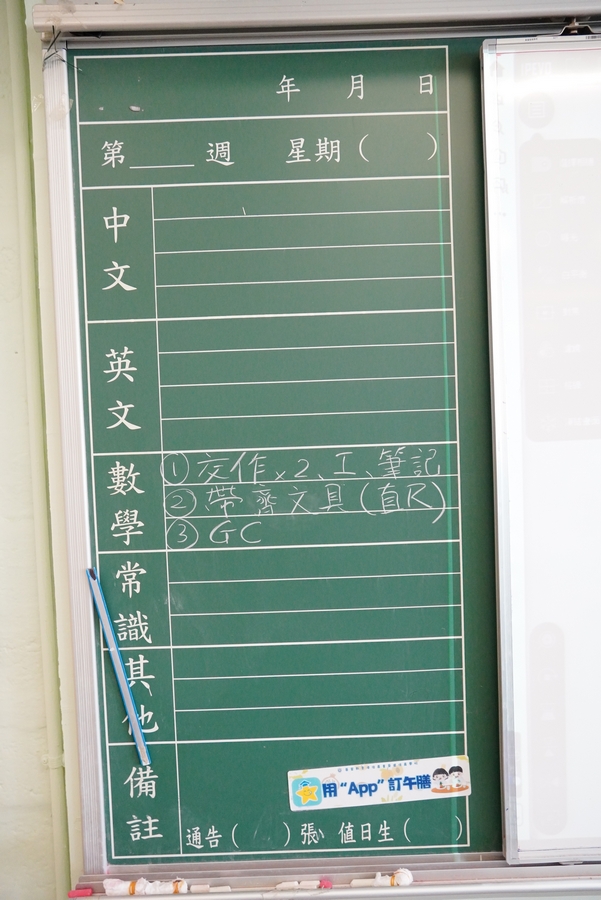 年 月 日
第____週 星期( )
中文
英文
數學
①交作x2、工、筆記
②帶齊文具(直R)
③GC
常識
其他
備註
用“App”訂午膳
通告( )張、值日生( )